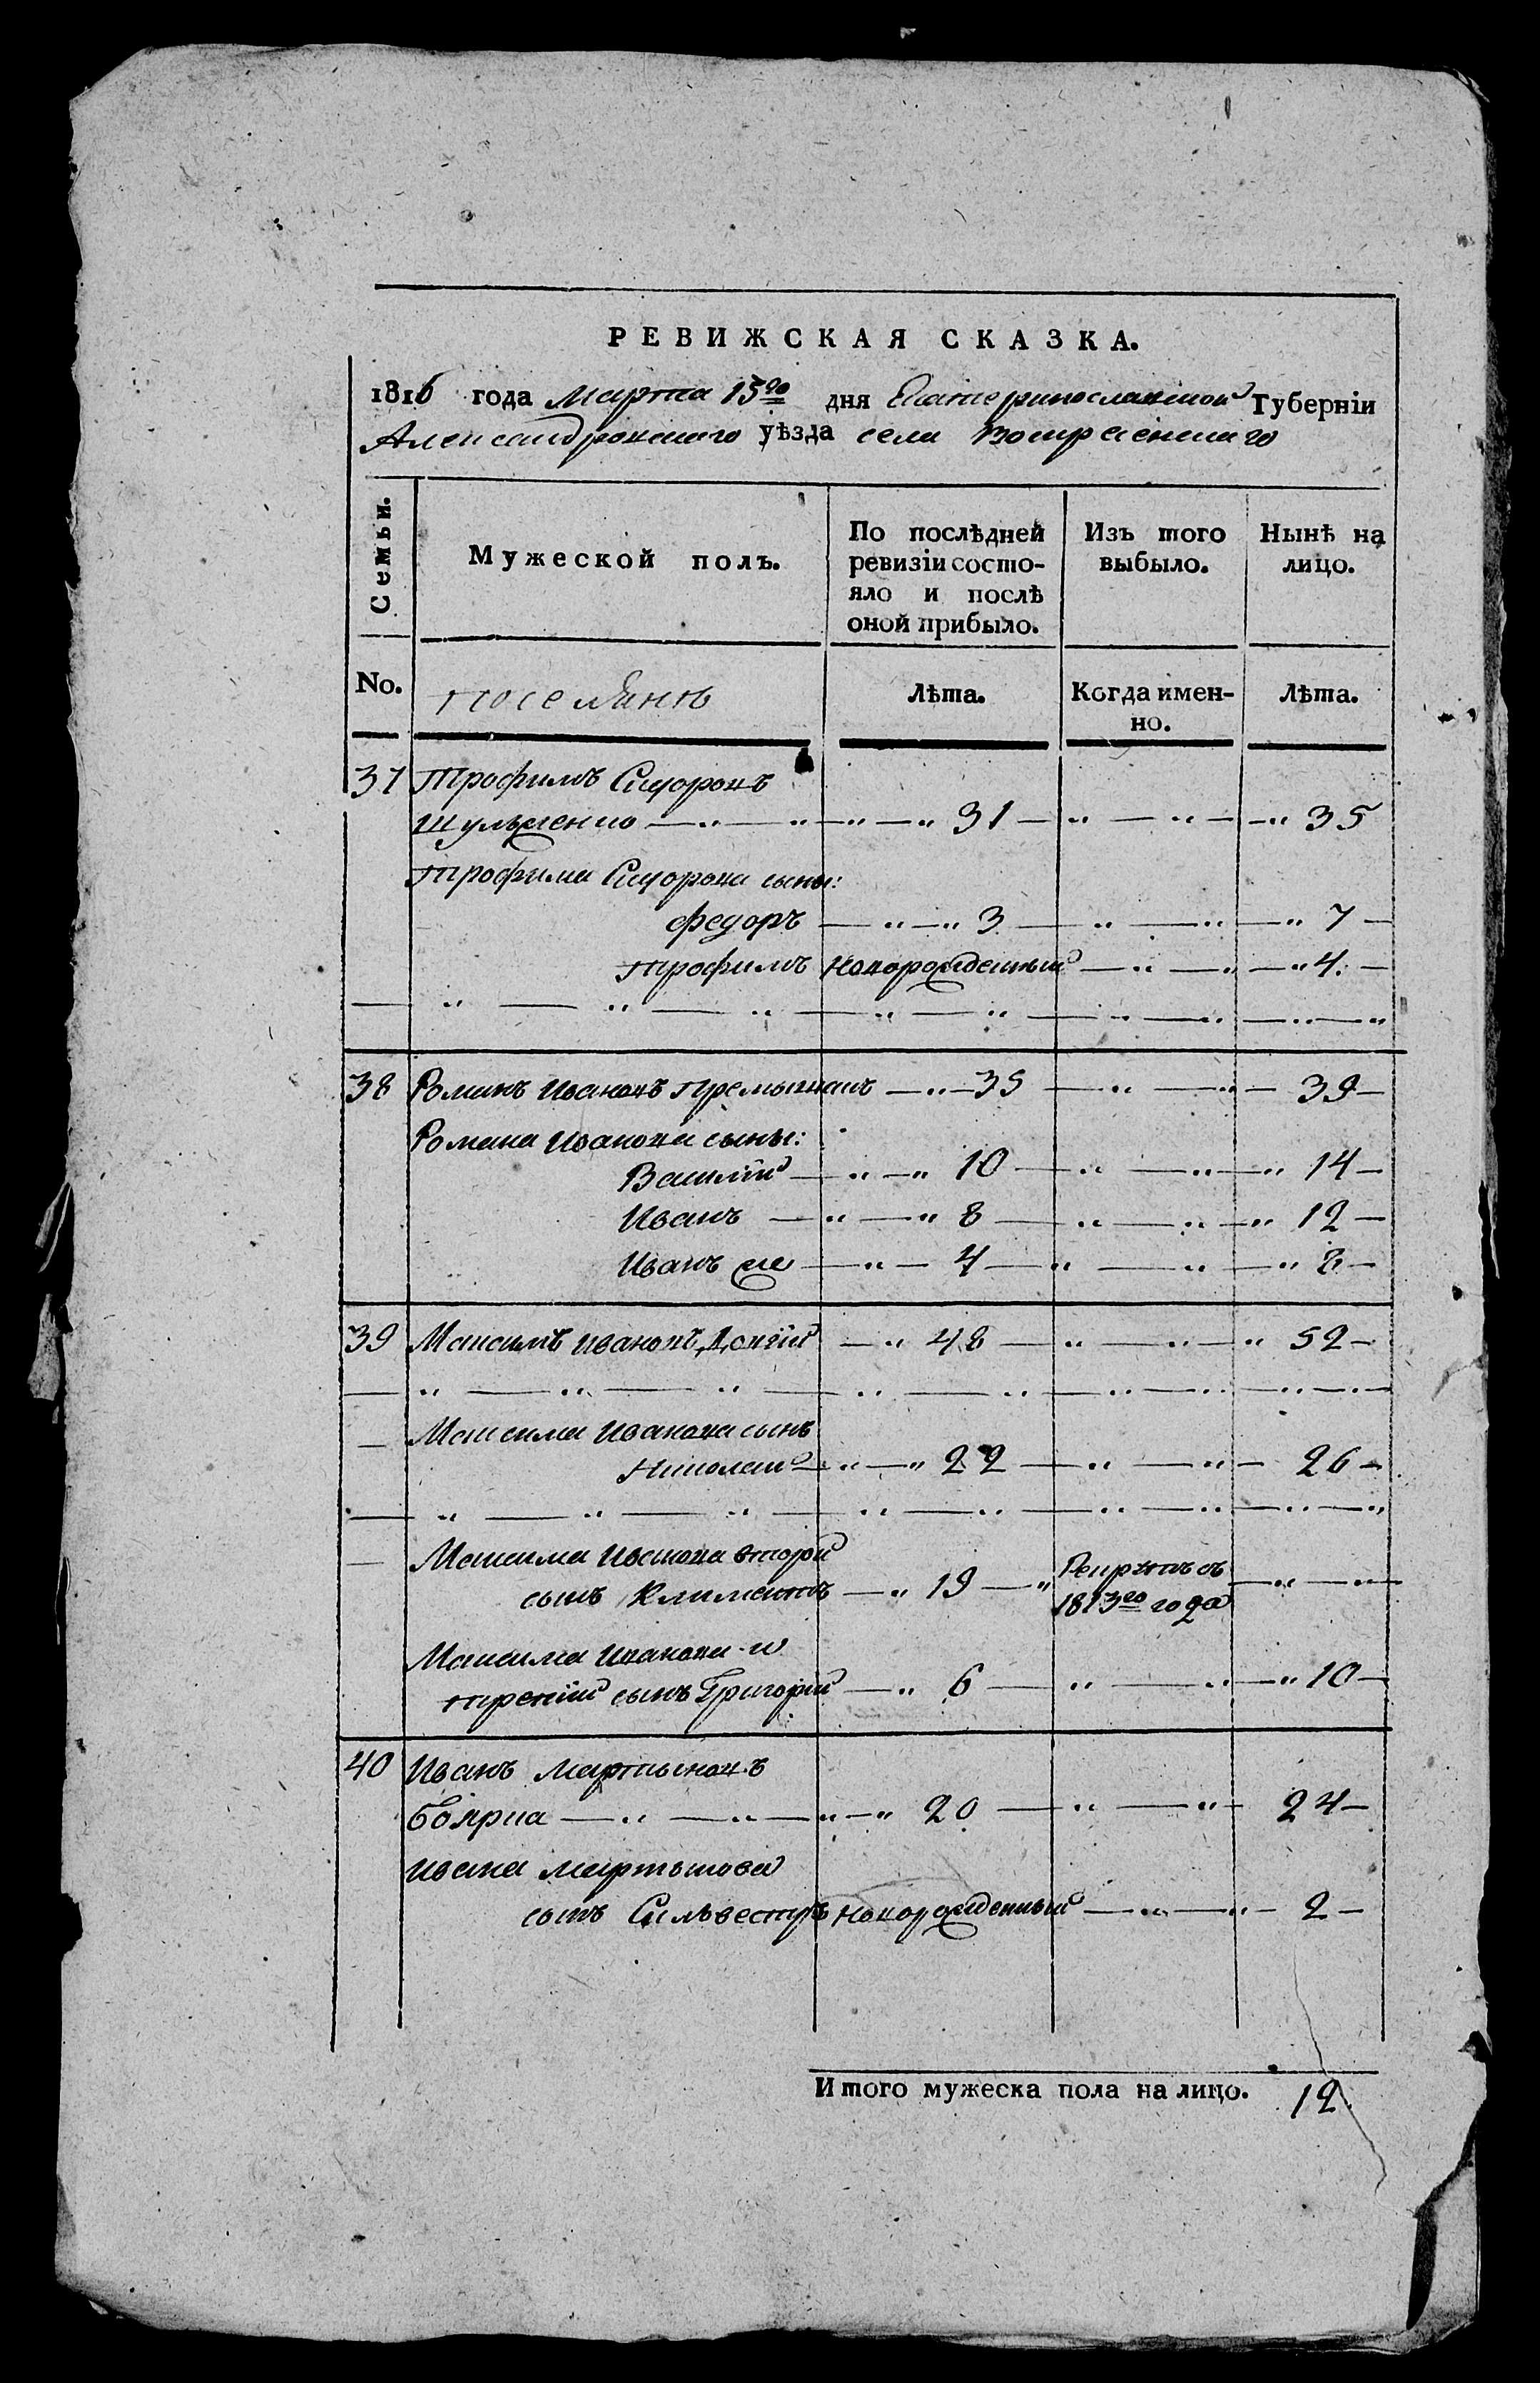 РЕВИЖСКАЯ СКАЗКА.
1816 года Марта 15го дня Екатеринославской Губерніи
Александровскаго уѣзда села Воскресенскаго
Семьи.
Мужеской полъ.
По послѣдней ревизіи состо-
яло и послѣ
оной прибыло.
Изъ того
выбыло.
Нынѣ на
лицо.
No.
поселянъ
Лѣта.
Когда имен-
но.
Лѣта.
37 Трофимъ Сидоровъ
Шульженко — " — " — " — " 31 — " — " — " 35
Трофима Сидорова сыны:
Федоръ — " — " 3 — " — " — " 7 —
Трофимъ новорожденный — " — " — " 4. —
— " — " — " — " — " — " — " — " — "
38 Романъ Ивановъ — " — 35 — " — " — 39 —
Романа Иванова сыны:
Василій — " — " 10 — " — " — " 14 —
Иванъ — " — " 8 — " — " — " 12 —
Иванъ же — " — 4 — " — " — " 8 —
39 Максимъ Ивановъ Довгій — " 48 — " — " — " 52 —
— " — " — " — " — " — " — " — " — " —
— Максима Иванова сынъ
Николай — " — " 22 — " — " — 26 —
— " — " — " — " — " — " — " — " — "
— Максима Иванова второй
сынъ Климентъ — " 19 — " Рекрутъ съ
1813го года — " — " —
Максима Иванова и
третій сынъ Григорій — " 6 — " — " — " 10 —
40 Иванъ Мартыновъ
Боярка — " — " — " — " 20 — " — " — 24 —
Ивана Мартынова
сынъ Сильвестръ новорожденный — " — " — 2 —
Итого мужеска пола на лицо. 12.